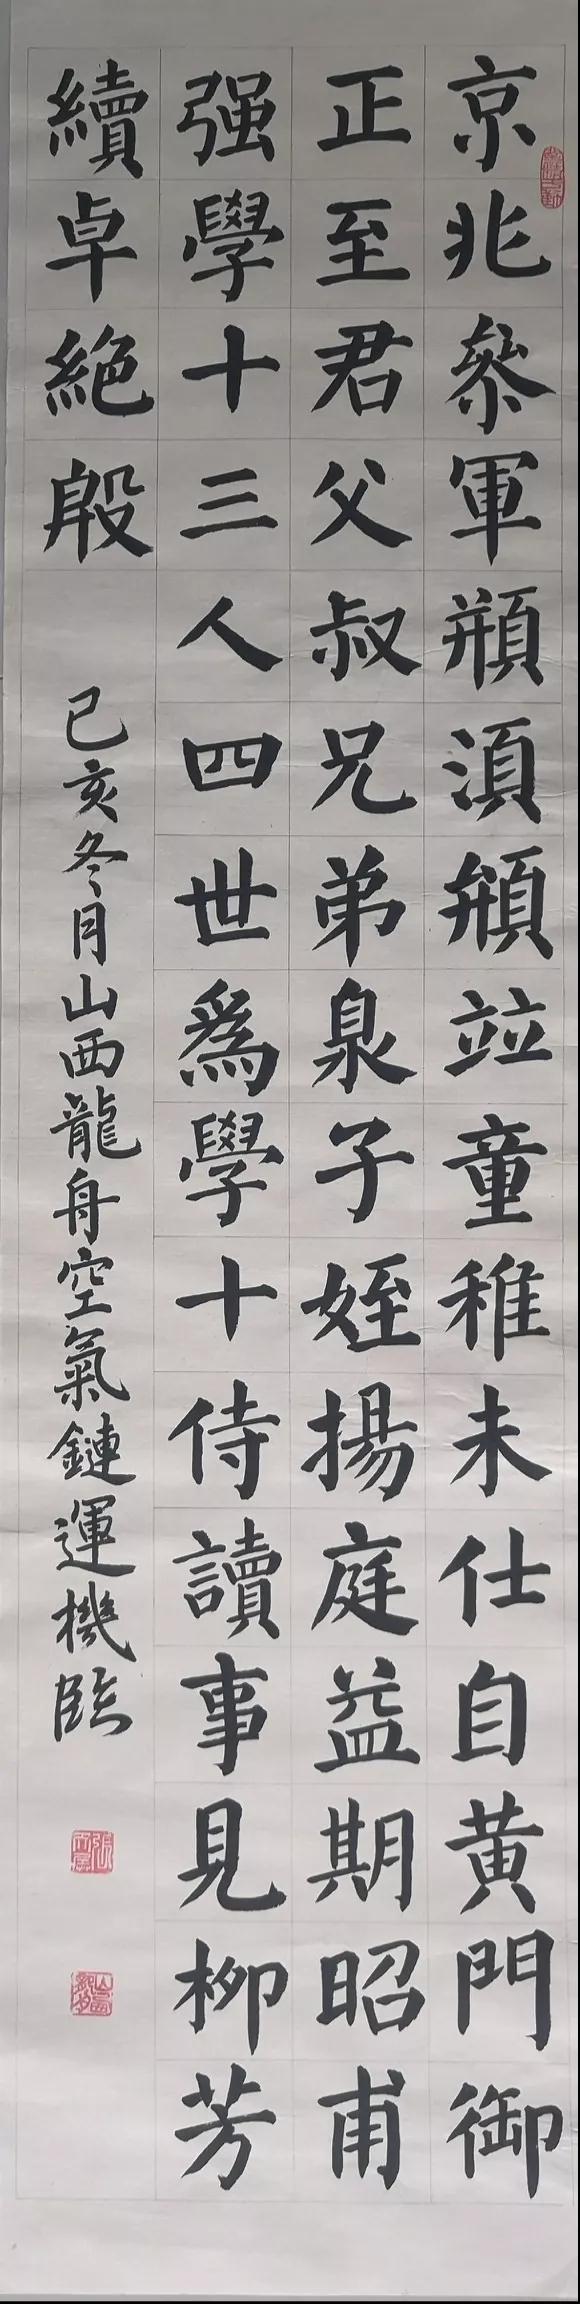 京兆參軍頩須頩竝童稚未仕自黄門御
正至君父叔兄弟泉子姪揚庭益期昭甫
强學十三人四世爲學十侍讀事見柳芳
續卓絶殷
己亥冬月山西龍舟空氣鏈運機臨